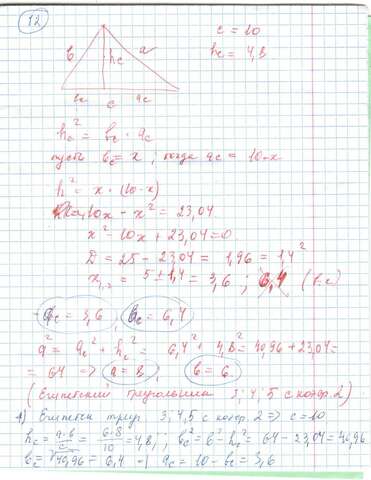 12
в a
hc
вc c ac
c = 10
hc = 4,8
hc² = вc · ac
пусть вc = x ; тогда ac = 10-x
h² = x · (10-x)
10x - x² = 23,04
x² - 10x + 23,04 = 0
D = 25 - 23,04 = 1,96 = 1,4²
x₁,₂ = 5 ± 1,4 = 3,6 ; 6,4
= 3,6 , = 6,4
a² = ac² + hc² = 6,4² + 4,8² = 40,96 + 23,04 =
= 64 => a = 8 , в = 6
(Египетский треугольник 3; 4; 5 с коэф. 2)
1) Египетск треуг. 3; 4, 5 с коэф. 2 => c = 10
hc = a·в/c = 6·8/10 = 4,8 ; вc² = в² - hc² = 64 - 23,04 = 40,96
вc = √40,96 = 6,4 ac = 10 - вc = 3,6